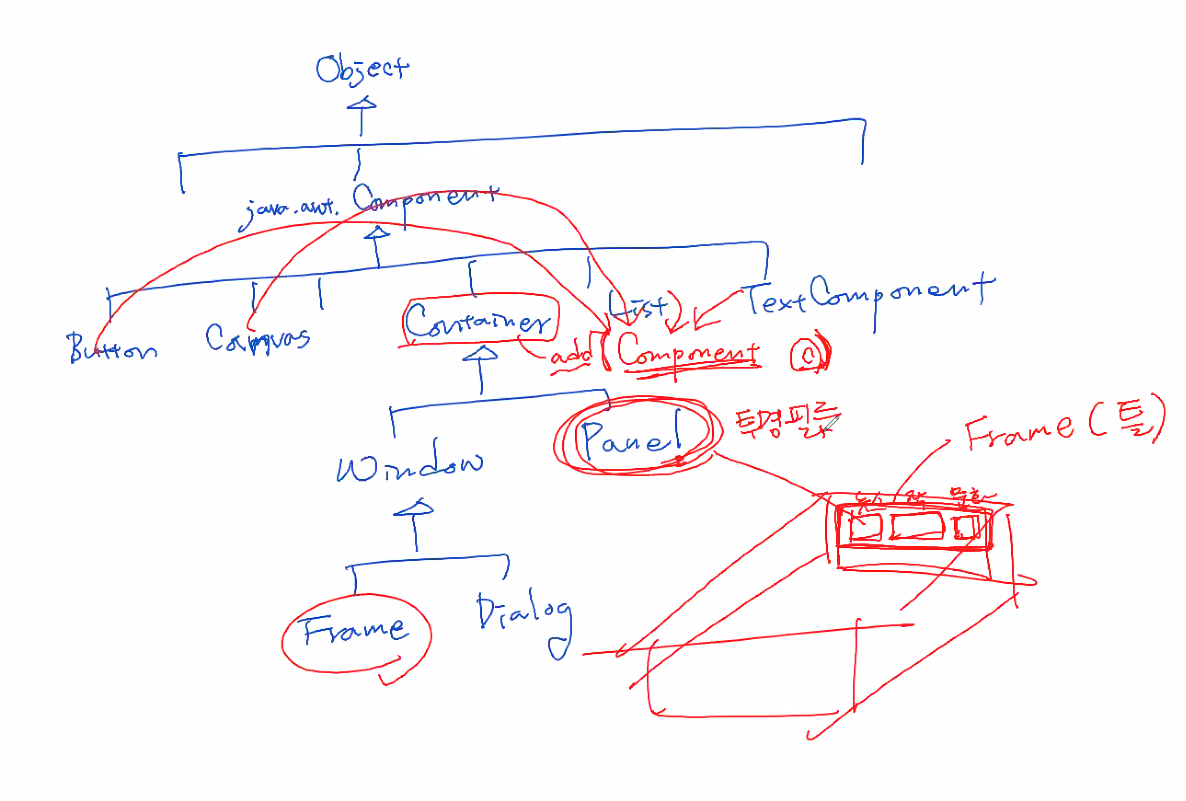 Object
java.awt. Component
Button
Canvas
Container
List
TextComponent
add ( Component c )
Window
Panel
투명필름
Frame (틀)
Frame
Dialog